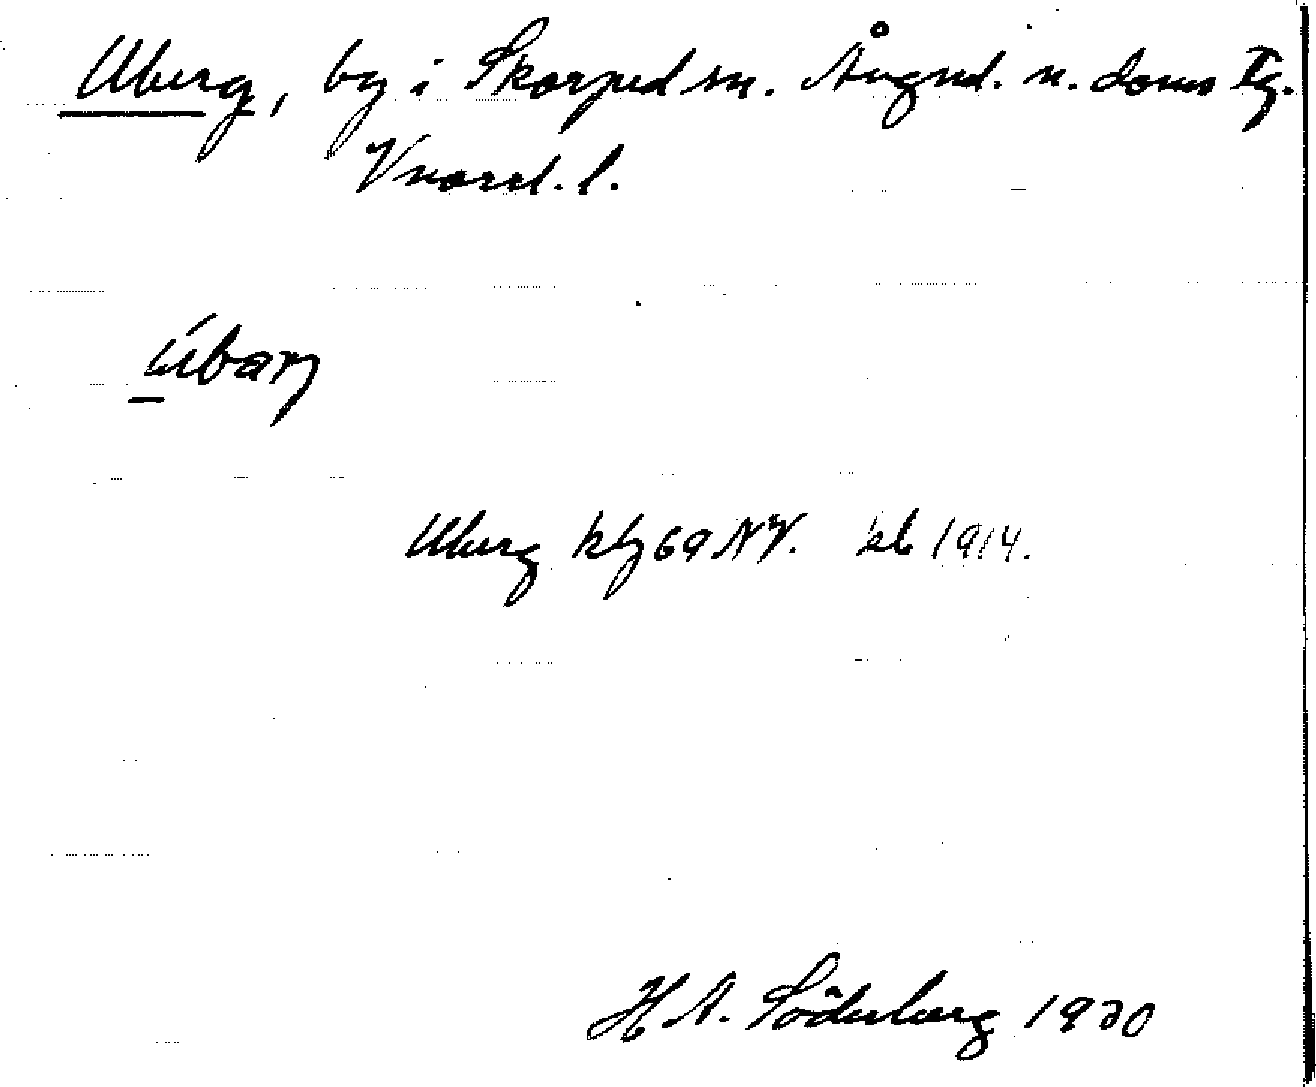 Uberg, by i Skorped sn. Ångnd. n. doms Tg.
Vnorrl. l.
Ubarj
Uberg kbg 69 NV. kb 1914.
H A. Söderberg 1930